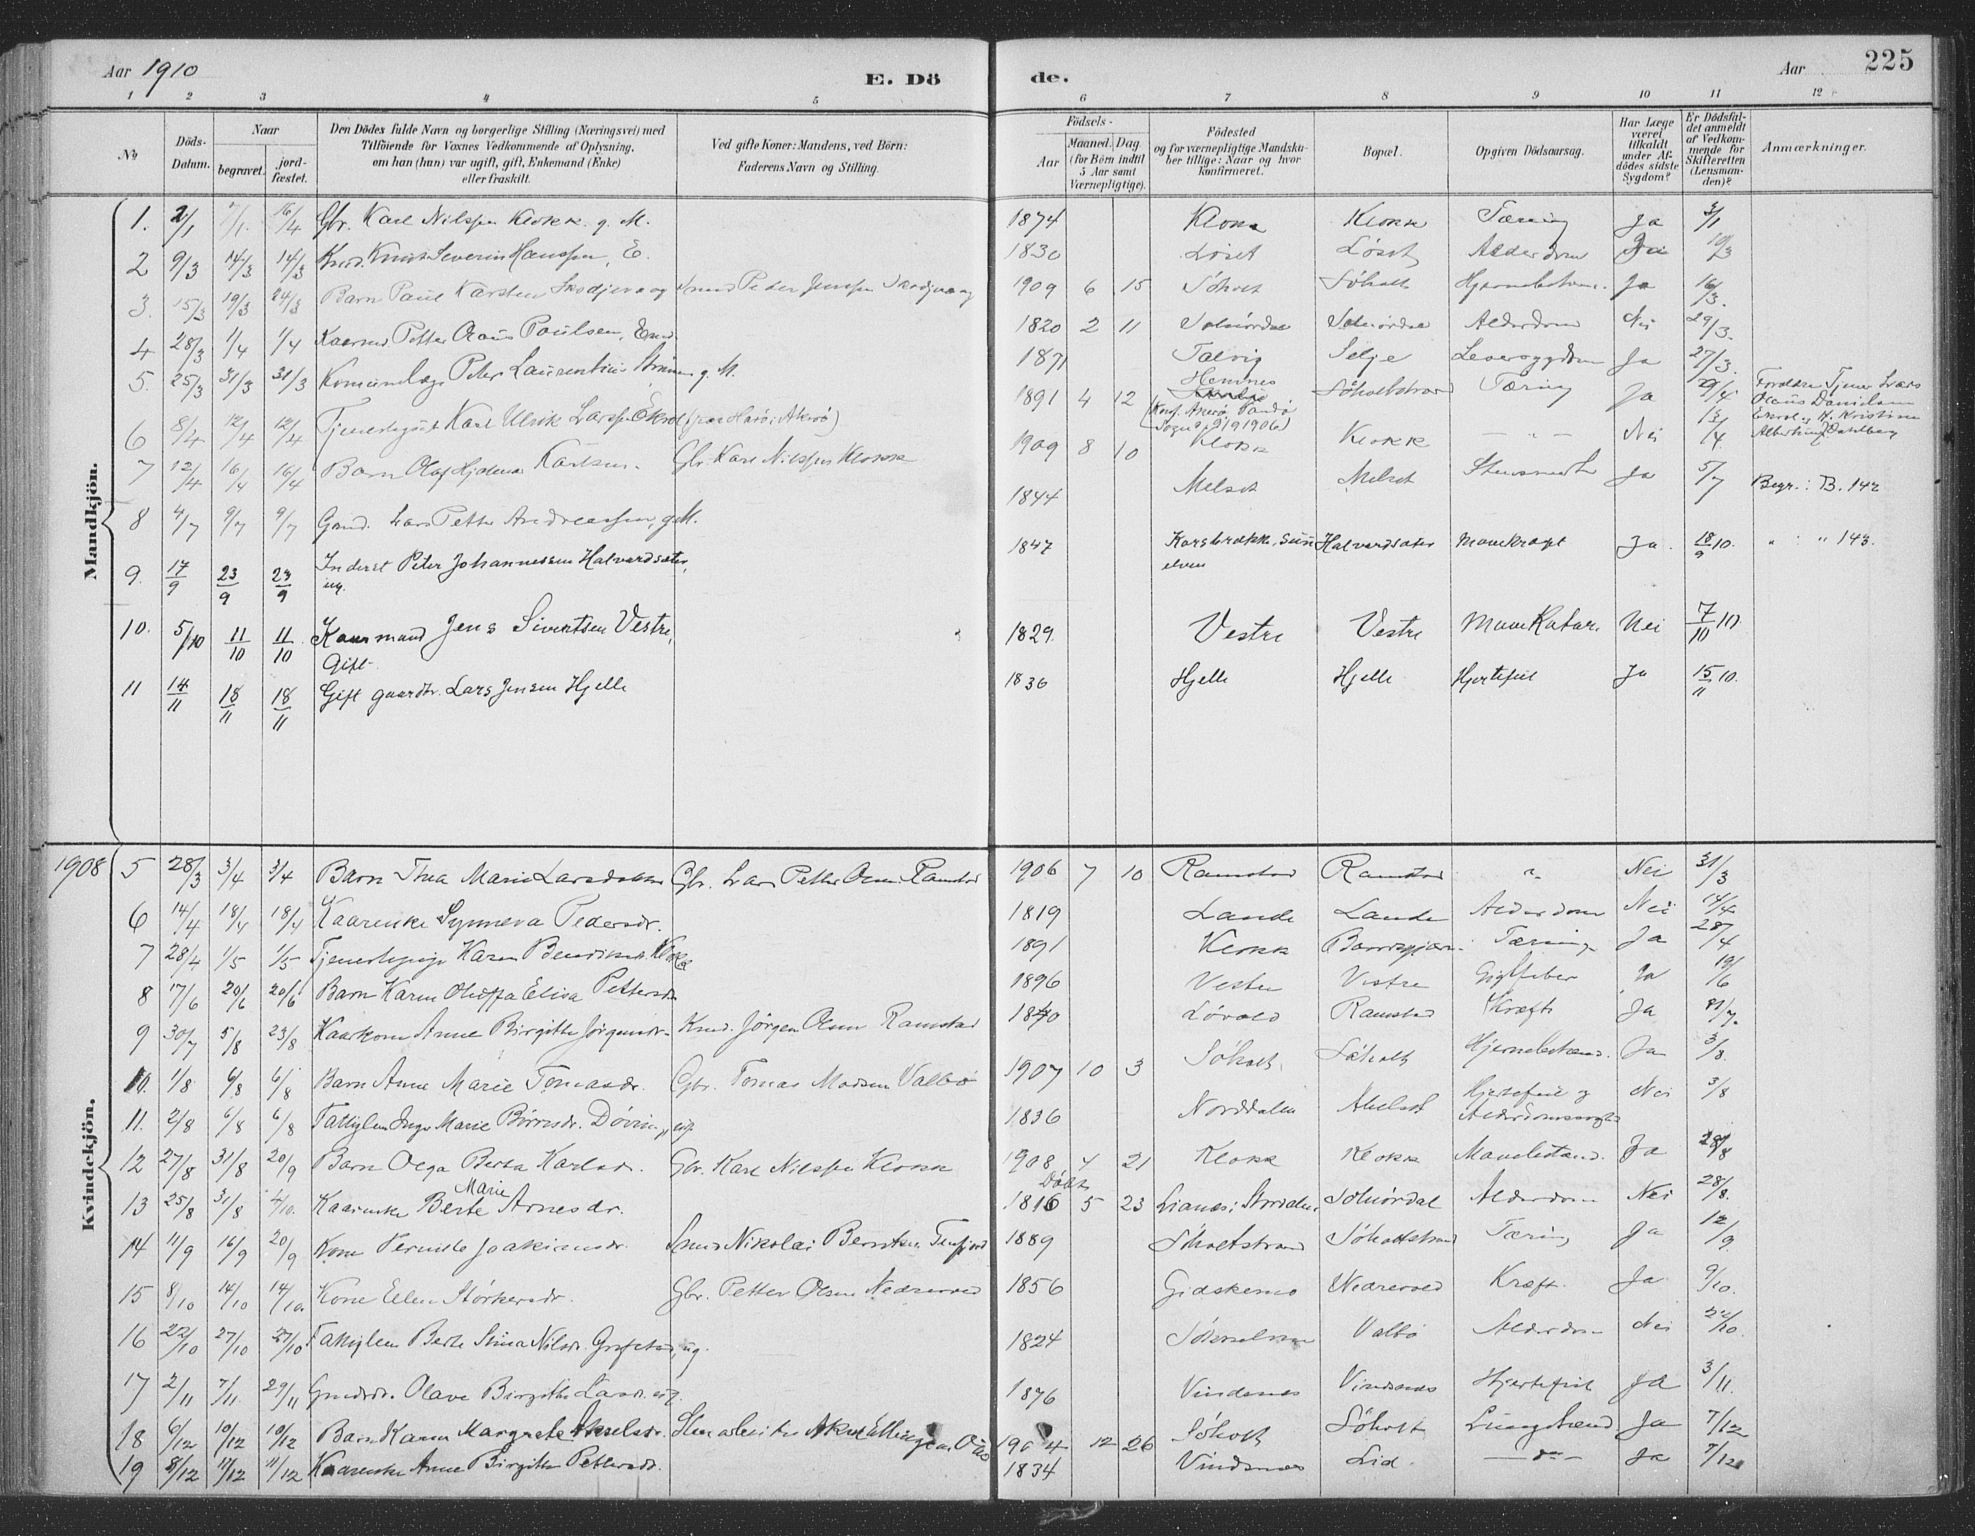 Aar 1910
E. Dö
de.
Aar
225
1 2 3 4 5 6 7 8 9 10 11 12
No
Döds-
Datum.
Naar
begravet.
jord-
fæstet.
Den Dödes fulde Navn og borgerlige Stilling (Næringsvei) med
Tilföiende for Voxnes Vedkommende af Oplysning,
om han (hun) var ugift, gift, Enkemand (Enke)
eller fraskilt.
Ved gifte Koner: Mandens, ved Börn:
Faderens Navn og Stilling.
Födsels-
Aar
Maaned. Dag
(for Börn indtil
5 Aar samt
Værnepligtige).
Födested
og for værnepligtige Mandska-
ber tillige: Naar og hvor
Konfirmeret.
Bopæl.
Opgiven Dödsaarsag.
Har Læge
været
tilkaldt
under Af-
dödes sidste
Sygdom?
Er Dödsfal-
det anmeldt
af Vedkom-
mende for
Skifteretten
(Lensman-
den)?
Anmærkninger.
Mandkjön.
1. 2/1 7/1 16/4 Gbr. Karl Nilssen Klokk. g. M. 1874 Klokk Klokk Tæring Ja 3/1
2 9/3 14/3 14/3 Knut Severin Hanssen, E. 1830 Löset Löset Alderdom 10/3
3. 15/3 19/3 24/3 Barn Paul Karsten Skodjevaag Peder Jenssen Skodjevaag 1909 6 15 Söholt Söholt Ja 16/3.
4 28/3 1/4 1/4 Kaarmd Petter Olaus Paulsen, Emd. 1820 2 11 Solnördal Solnördal Alderdom Nei 29/3.
5. 25/3 31/3 31/3 Peter Laurentius g. M. 1871 Talvig Selje Ja 27/3.
6 8/4 12/4 12/4 Tjenestegut Karl Ulrik Larssen Ekrol 1891 4 12 Hennes
(Konf. Akerö Sandö
Sogn 9/9 1906) Söholtstrand Tæring Ja Forældre Tjener Lars
Olaus Danielsen
Ekrol og H. Kristine
Albertine Dahlberg
7 12/4 16/4 16/4 Barn Olaf Hjalmar Karlsen. Gbr. Karl Nilssen Klokk 1909 8 10 Klokk Klokk — " — Nei 13/4
8 4/7 9/7 9/7 Gmd. Lars Petter Andreassen, g. M. 1844 Melset Melset Ja 5/7 Begr.: B. 142
9. 17/9 23/9 23/9 Inderst Peter Johannessen Halvardsæter,
ug. 1847 Korsbrække, Sun
elven Halvardsæter Mavekræft Ja. 18/9 10. " : " 143.
10. 5/10 11/10 11/10 Kaarmand Jens Sivertsen Vestre,
Gift. 1829. Vestre Vestre Mavekatar. Nei 7/10 10.
11 14/11 18/11 18/11 Gift gaardbr. Lars Jensen Hjelle 1836 Hjelle Hjelle Hjertefeil Ja 15/11 10.
1908
Kvindekjön.
5 28/3 3/4 3/4 Barn Thea Marie Larsdatter Gbr. Lars Petter Olsen Ramstad 1906 7 10 Ramstad Ramstad " Nei 31/3
6 14/4 18/4 18/4 Kaarenke Synneva Pedersdr. 1819 Lande Lande Alderdom Nei 14/4
7 28/4 1/5 1/5 Tjenestepige Karen Klokk 1891 Klokk Tæring Ja 28/4
8 17/6 20/6 20/6 Barn Karen Oluffa Elisa Pettersdr 1896 Vestre Vestre Gigtfeber Ja 19/6
9 30/7 5/8 23/8 Kaarkone Anne Birgitte Jörgensdr. Kmd. Jörgen Olsen Ramstad 1840 Lövold Ramstad Kræft Ja 31/7.
10. 1/8 6/8 6/8 Barn Anne Marie Tomasdr. Gbr. Tomas Madsen Valbö 1907 10 3 Söholt Söholt Ja 3/8.
11. 2/8 6/8 6/8 Fattiglem Inger Marie Dövin ug. 1836 Norddalen Hjertefeil og
Nei 3/8
12 27/8 31/8 20/9 Barn Olga Berta Karlsdr. Gbr. Karl Nilssen Klokk 1908 4 21 Klokk Klokk Ja 28/8
13 25/8 31/8 4/10. Kaarenke Berte Marie Arnesdr. Döbt
1816 5 23 Lianes i Stordalen Solnördal Alderdom Nei 28/8.
14 11/9 16/9 20/9 Kone Pernille Joakimsdr. Smed Nikolai Berntsen Tenfjord 1889 Söholtstrand Söholtstrand Tæring Ja 12/9.
15 8/10 14/10 14/10. Kone Elen Störkersdr. Gbr. Petter Olsen Nedrevold 1856 Gidskemo Nedrevold Kræft. Ja 9/10.
16 22/10 27/10 27/10 Fattiglem Berte Stina Nilsdr. ug. 1824 Valbö Alderdom Nei 22/10.
17 2/11 7/11 29/11 Gmdsdr. Olave Birgitte Larsdr. ug. 1876 Vindsnes Vindsnes Hjertefeil Ja 3/11.
18 6/12 10/12 10/12 Barn Karen Margrete Akselsdr. Aksel 1904 12 26 Söholt Söholt Ja 7/12
19 8/12 11/12 11/12 Kaarenke Anne Birgitte Pettersdr. 1834 Vindsnes Lid. — do — Ja 7/12